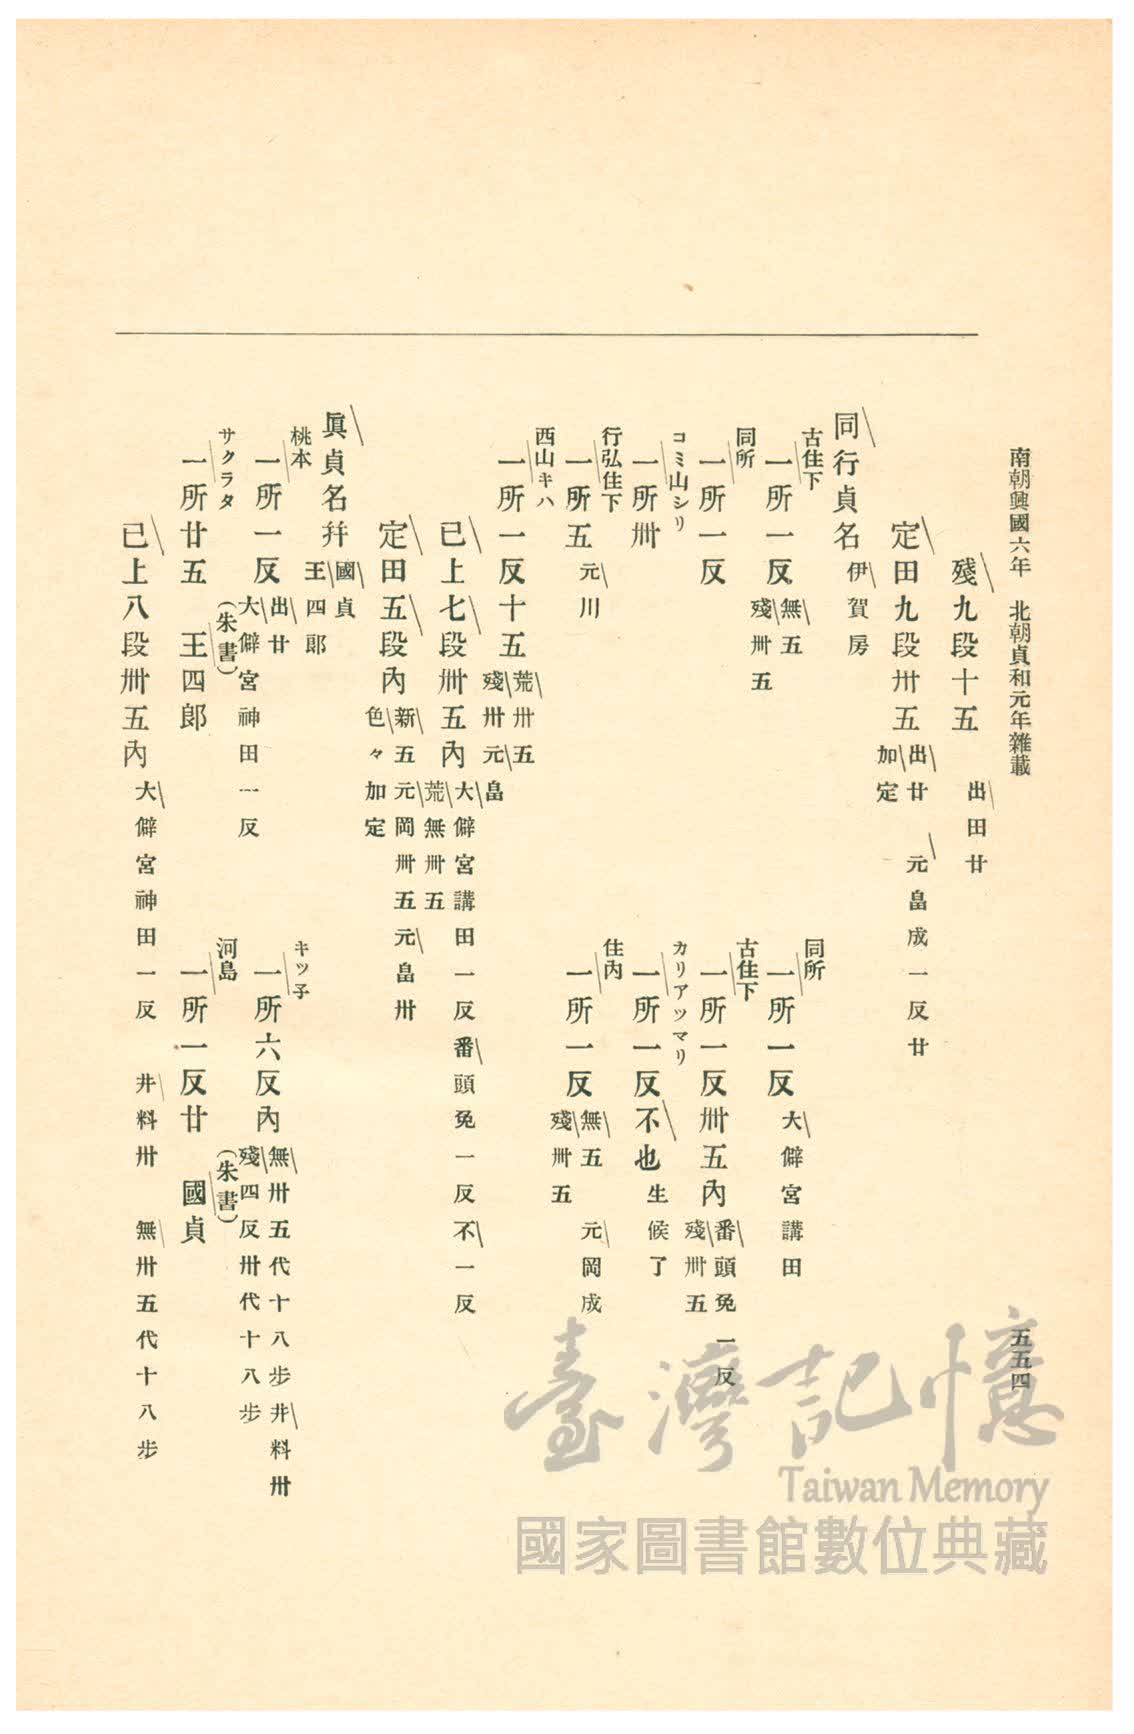 南朝興國六年　北朝貞和元年雜載
五五四
殘九段十五　出田廿
定田九段卅五　出廿　元畠成一反廿
加定
同行貞名　伊賀房
古住下
一所一反　無五
殘卌五
同所
一所一反　大僻宮講田
同所
一所一反
古住下
一所一反卌五內　番頭免一反
殘卌五
コミ山シリ
一所卌
カリアツマリ
一所一反　不也　生候了
行弘住下
一所五　元川
住內
一所一反　無五　元岡成
殘卌五
西山キハ
一所一反十五　荒卅五
殘卌元畠
已上七段卌五內　大僻宮講田一反番頭免一反不一反
荒無卌五
定田五段內　新五元岡卌五元畠卅
色々加定
眞貞名幷　國貞
王四郎
桃本
一所一反　出廿
大僻宮神田一反
キツ子
一所六反內　無卅五代十八步井料卌
殘四反卌代十八步
サクラタ
一所廿五　(朱書)王四郎
河島
一所一反廿　(朱書)國貞
已上八段卌五內　大僻宮神田一反　井料卅　無卌五代十八步
臺灣記憶
Taiwan Memory
國家圖書館數位典藏